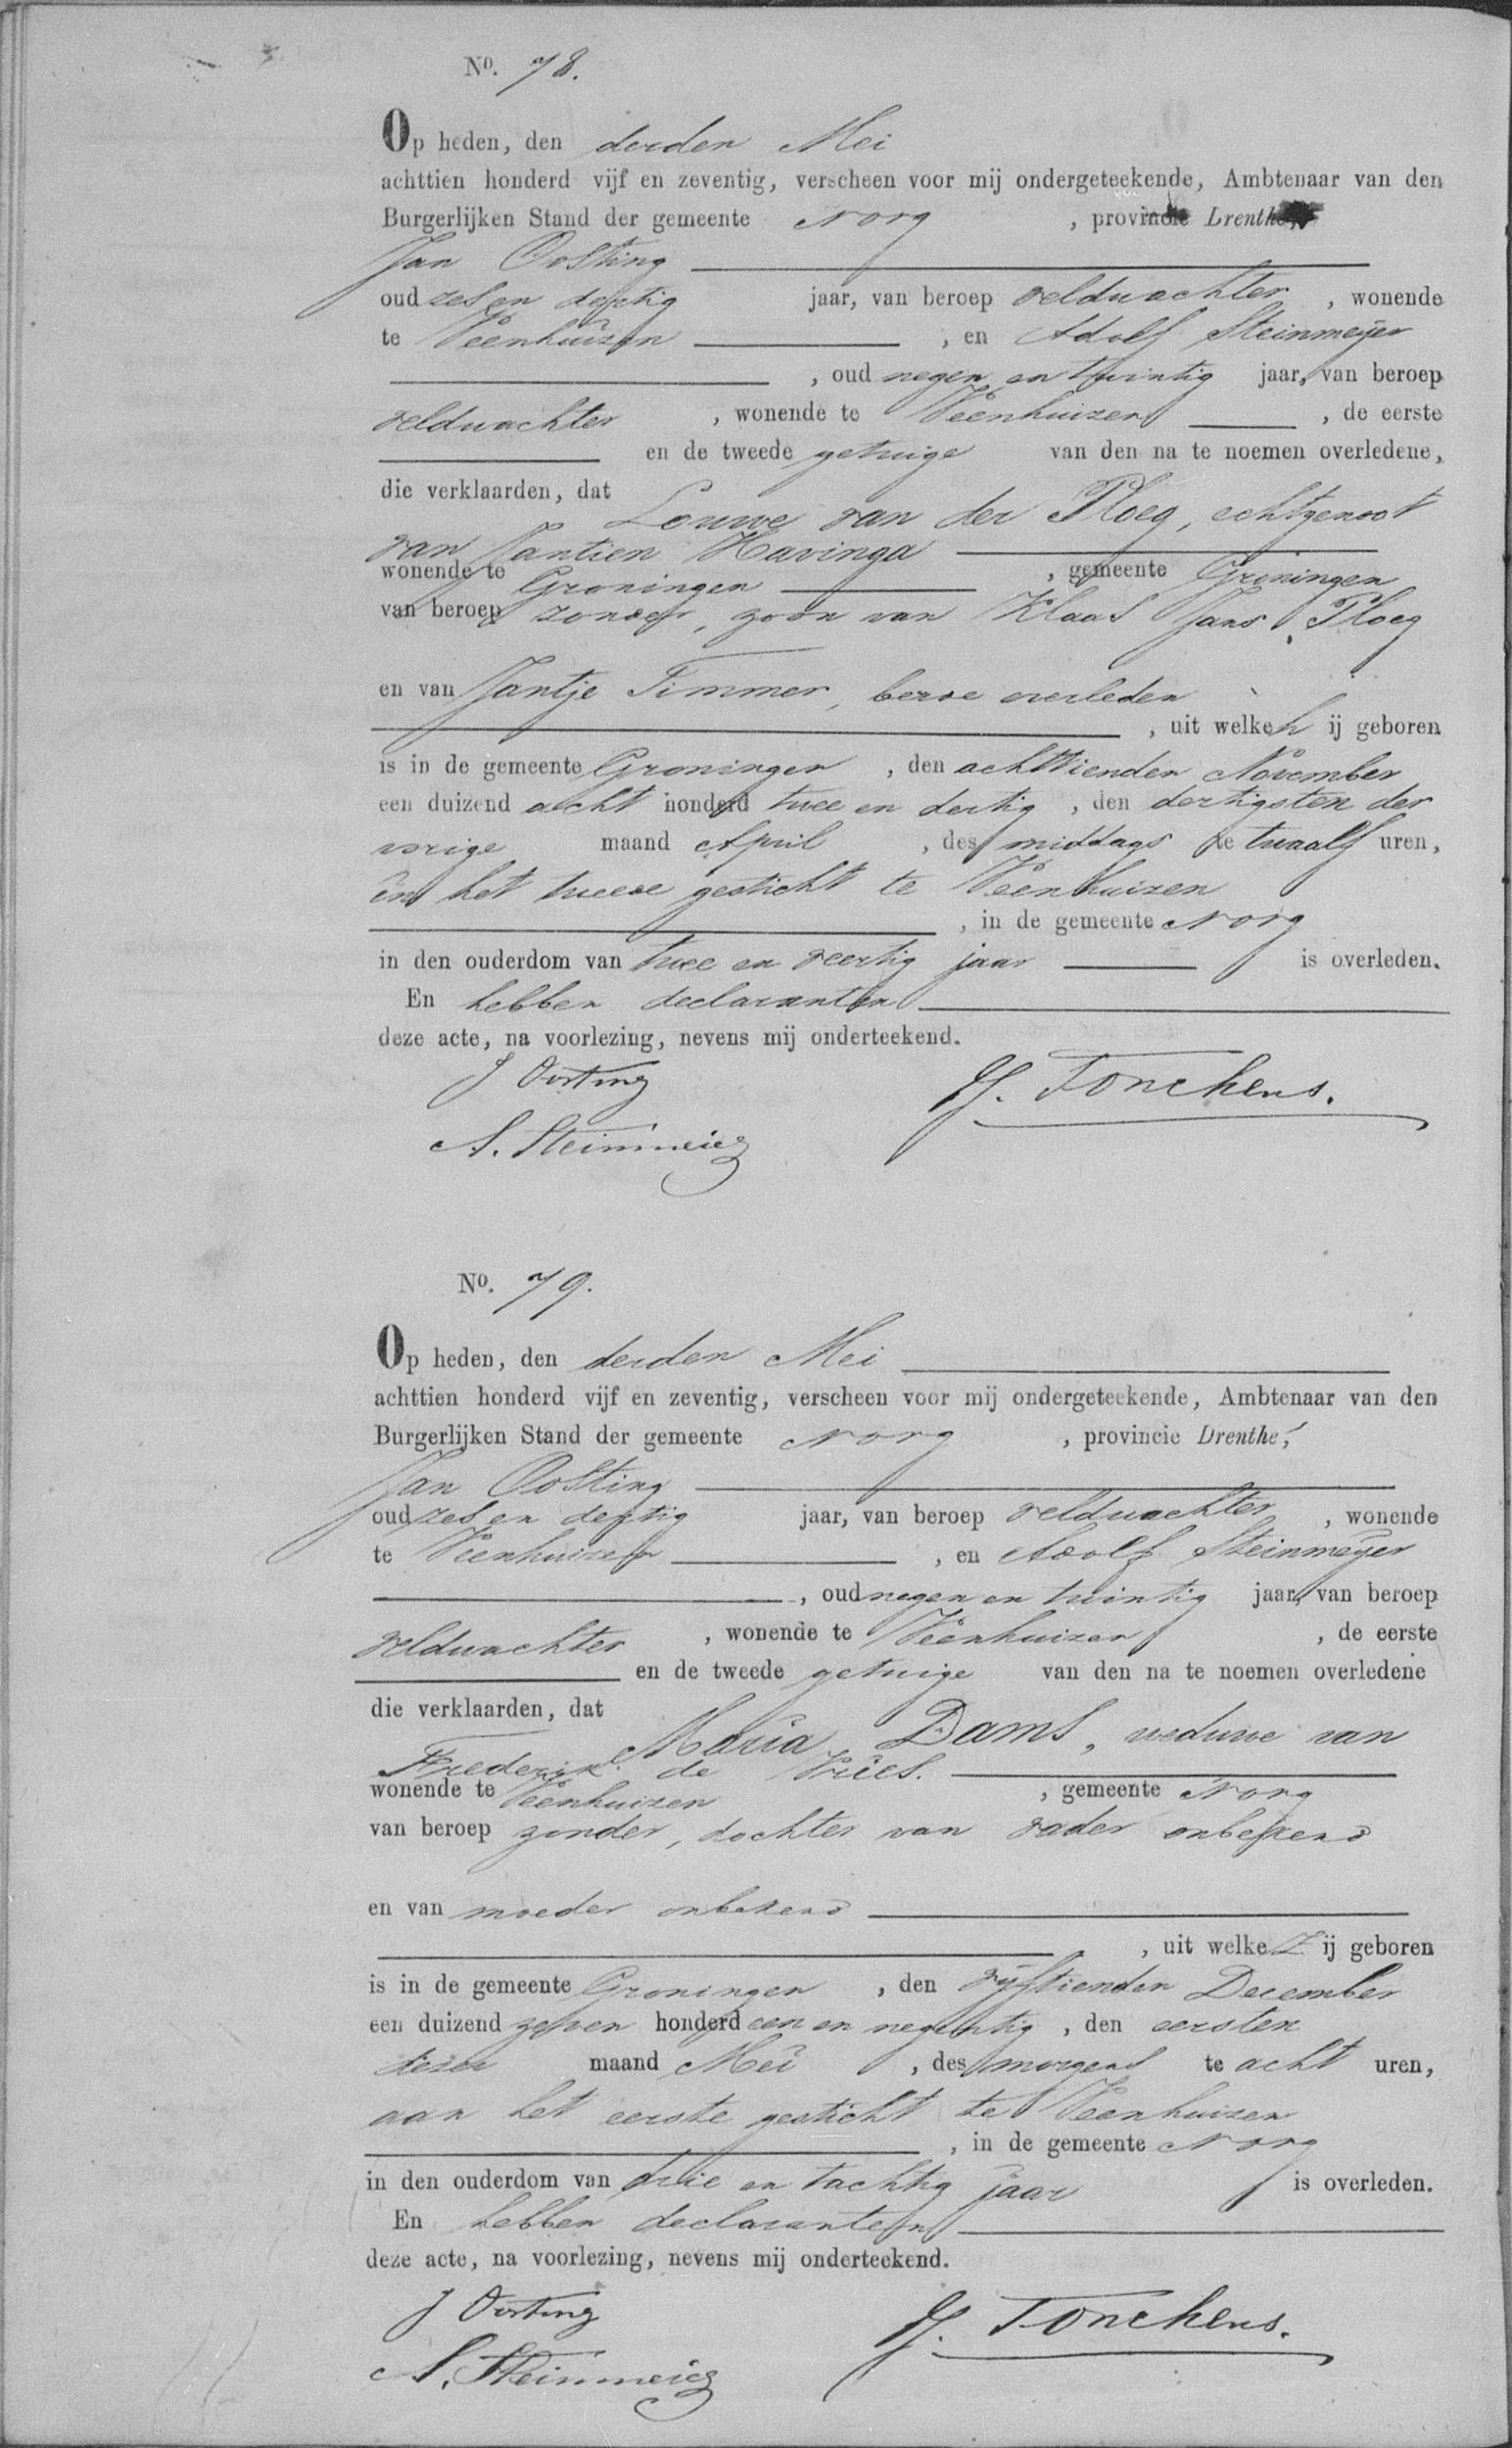 No. 78.
Op heden, den derden Mei
achttien honderd vijf en zeventig, verscheen voor mij ondergeteekende, Ambtenaar van den
Burgerlijken Stand der gemeente Norg, provincie Drenthe,
Jan Oosting
oud zes en dertig jaar, van beroep veldwachter, wonende
te Veenhuizen, en Adolf Steinmeijer
, oud negen en twintig jaar, van beroep
veldwachter, wonende te Veenhuizen, de eerste
en de tweede getuige van den na te noemen overledene,
die verklaarden, dat
Louwe van der Ploeg, echtgenoot
van Jantien Havinga
wonende te Groningen, gemeente Groningen
van beroep zonder, zoon van Klaas Jans Ploeg
en van Jantje Timmer, beide overleden
, uit welke h ij geboren
is in de gemeente Groningen, den achttienden November
een duizend acht honderd twee en dertig, den dertigsten der
vorige maand April, des middags te twaalf uren,
in het tweede gesticht te Veenhuizen
, in de gemeente Norg
in den ouderdom van twee en veertig jaar is overleden.
En hebben declaranten
deze acte, na voorlezing, nevens mij onderteekend.
J Oosting
H. Tonckens.
A. Steinmeier
No. 79.
Op heden, den derden Mei
achttien honderd vijf en zeventig, verscheen voor mij ondergeteekende, Ambtenaar van den
Burgerlijken Stand der gemeente Norg, provincie Drenthe,
Jan Oosting
oud zes en dertig jaar, van beroep veldwachter, wonende
te Veenhuizen, en Adolf Steinmeijer
, oud negen en twintig jaar, van beroep
veldwachter, wonende te Veenhuizen, de eerste
en de tweede getuige van den na te noemen overledene
die verklaarden, dat
Maria Dams, weduwe van
Frederik de Vries.
wonende te Veenhuizen, gemeente Norg
van beroep zonder, dochter van vader onbekend
en van moeder onbekend
, uit welke Z ij geboren
is in de gemeente Groningen, den vijftienden December
een duizend zeven honderd een en negentig, den eersten
dezer maand Mei, des morgens te acht uren,
aan het eerste gesticht te Veenhuizen
, in de gemeente Norg
in den ouderdom van drie en tachtig jaar is overleden.
En hebben declaranten
deze acte, na voorlezing, nevens mij onderteekend.
J Oosting
H. Tonckens.
A. Steinmeier